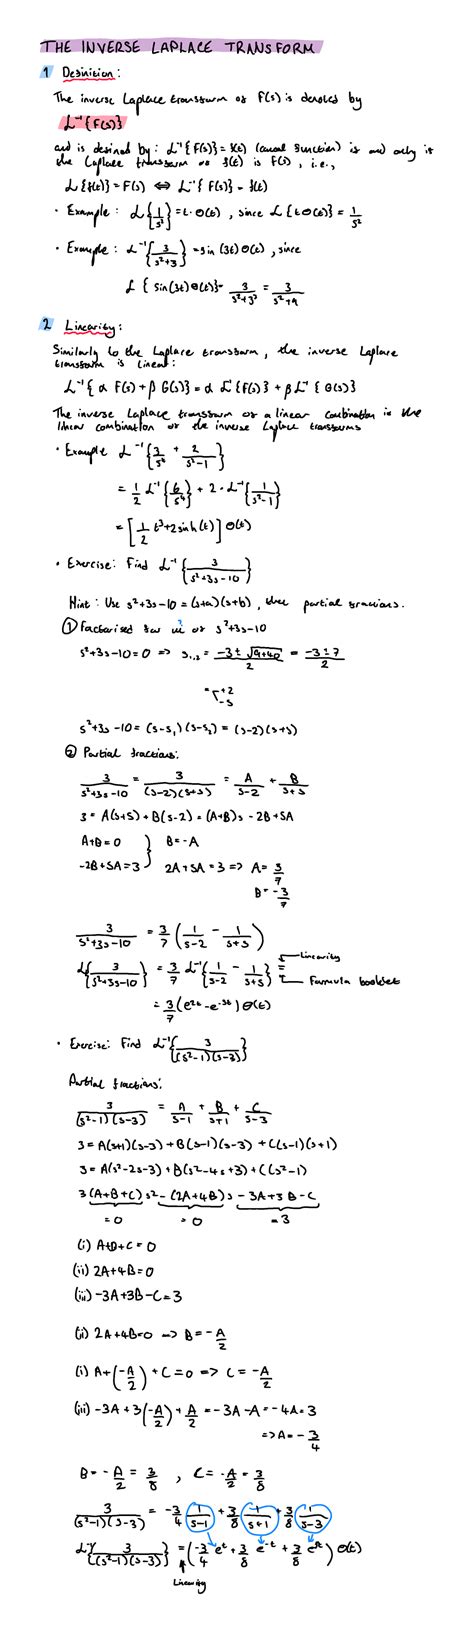 THE INVERSE LAPLACE TRANSFORM
1 Definition:
The inverse Laplace transform of F(s) is denoted by
L⁻¹{F(s)}
and is defined by: L⁻¹{F(s)} = f(t) (causal function) if and only if
the Laplace transform of f(t) is F(s), i.e.,
L{f(t)} = F(s) ⇔ L⁻¹{F(s)} = f(t)
• Example: L{1/s²} = t·Θ(t), since L{tΘ(t)} = 1/s²
• Example: L⁻¹{3/(s²+3)} = sin(3t)Θ(t), since
L{sin(3t)Θ(t)} = 3/(s²+3²) = 3/(s²+9)
2 Linearity:
Similarly to the Laplace transform, the inverse Laplace
transform is linear:
L⁻¹{α F(s) + β G(s)} = α L⁻¹{F(s)} + β L⁻¹{G(s)}
The inverse Laplace transform of a linear combination is the
linear combination of the inverse Laplace transforms
• Example L⁻¹{3/s⁴ + 2/(s²-1)}
= 1/2 L⁻¹{6/s⁴} + 2·L⁻¹{1/(s²-1)}
= [1/2 t³ + 2sinh(t)] Θ(t)
• Exercise: Find L⁻¹{3/(s²+3s-10)}
Hint: Use s²+3s-10 = (s+a)(s+b), then partial fractions.
① Factorised for m of s²+3s-10
s²+3s-10 = 0 => s₁,₂ = (-3±√(9+40))/2 = (-3±7)/2
= +2
-5
s²+3s-10 = (s-s₁)(s-s₂) = (s-2)(s+5)
② Partial fractions:
3/(s²+3s-10) = 3/((s-2)(s+5)) = A/(s-2) + B/(s+5)
3 = A(s+5) + B(s-2) = (A+B)s - 2B + 5A
A+B = 0 } B = -A
-2B+5A = 3 } 2A+5A = 3 => A = 3/7
B = -3/7
3/(s²+3s-10) = 3/7 (1/(s-2) - 1/(s+5))
L⁻¹{3/(s²+3s-10)} = 3/7 L⁻¹{1/(s-2) - 1/(s+5)} = ← Linearity
← Formula booklet
= 3/7 (e²ᵗ - e⁻⁵ᵗ) Θ(t)
• Exercise: Find L⁻¹{3/((s²-1)(s-3))}
Partial fractions:
3/((s²-1)(s-3)) = A/(s-1) + B/(s+1) + C/(s-3)
3 = A(s+1)(s-3) + B(s-1)(s-3) + C(s-1)(s+1)
3 = A(s²-2s-3) + B(s²-4s+3) + C(s²-1)
3 (A+B+C)s² - (2A+4B)s - 3A+3B-C
= 0 = 0 = 3
(i) A+B+C = 0
(ii) 2A+4B = 0
(iii) -3A+3B-C = 3
(ii) 2A+4B = 0 => B = -A/2
(i) A + (-A/2) + C = 0 => C = -A/2
(iii) -3A + 3(-A/2) + A/2 = -3A - A = -4A = 3
=> A = -3/4
B = -A/2 = 3/8 , C = -A/2 = 3/8
3/((s²-1)(s-3)) = -3/4 1/(s-1) + 3/8 1/(s+1) + 3/8 1/(s-3)
L⁻¹{3/((s²-1)(s-3))} = (-3/4 eᵗ + 3/8 e⁻ᵗ + 3/8 e³ᵗ) Θ(t)
Linearity